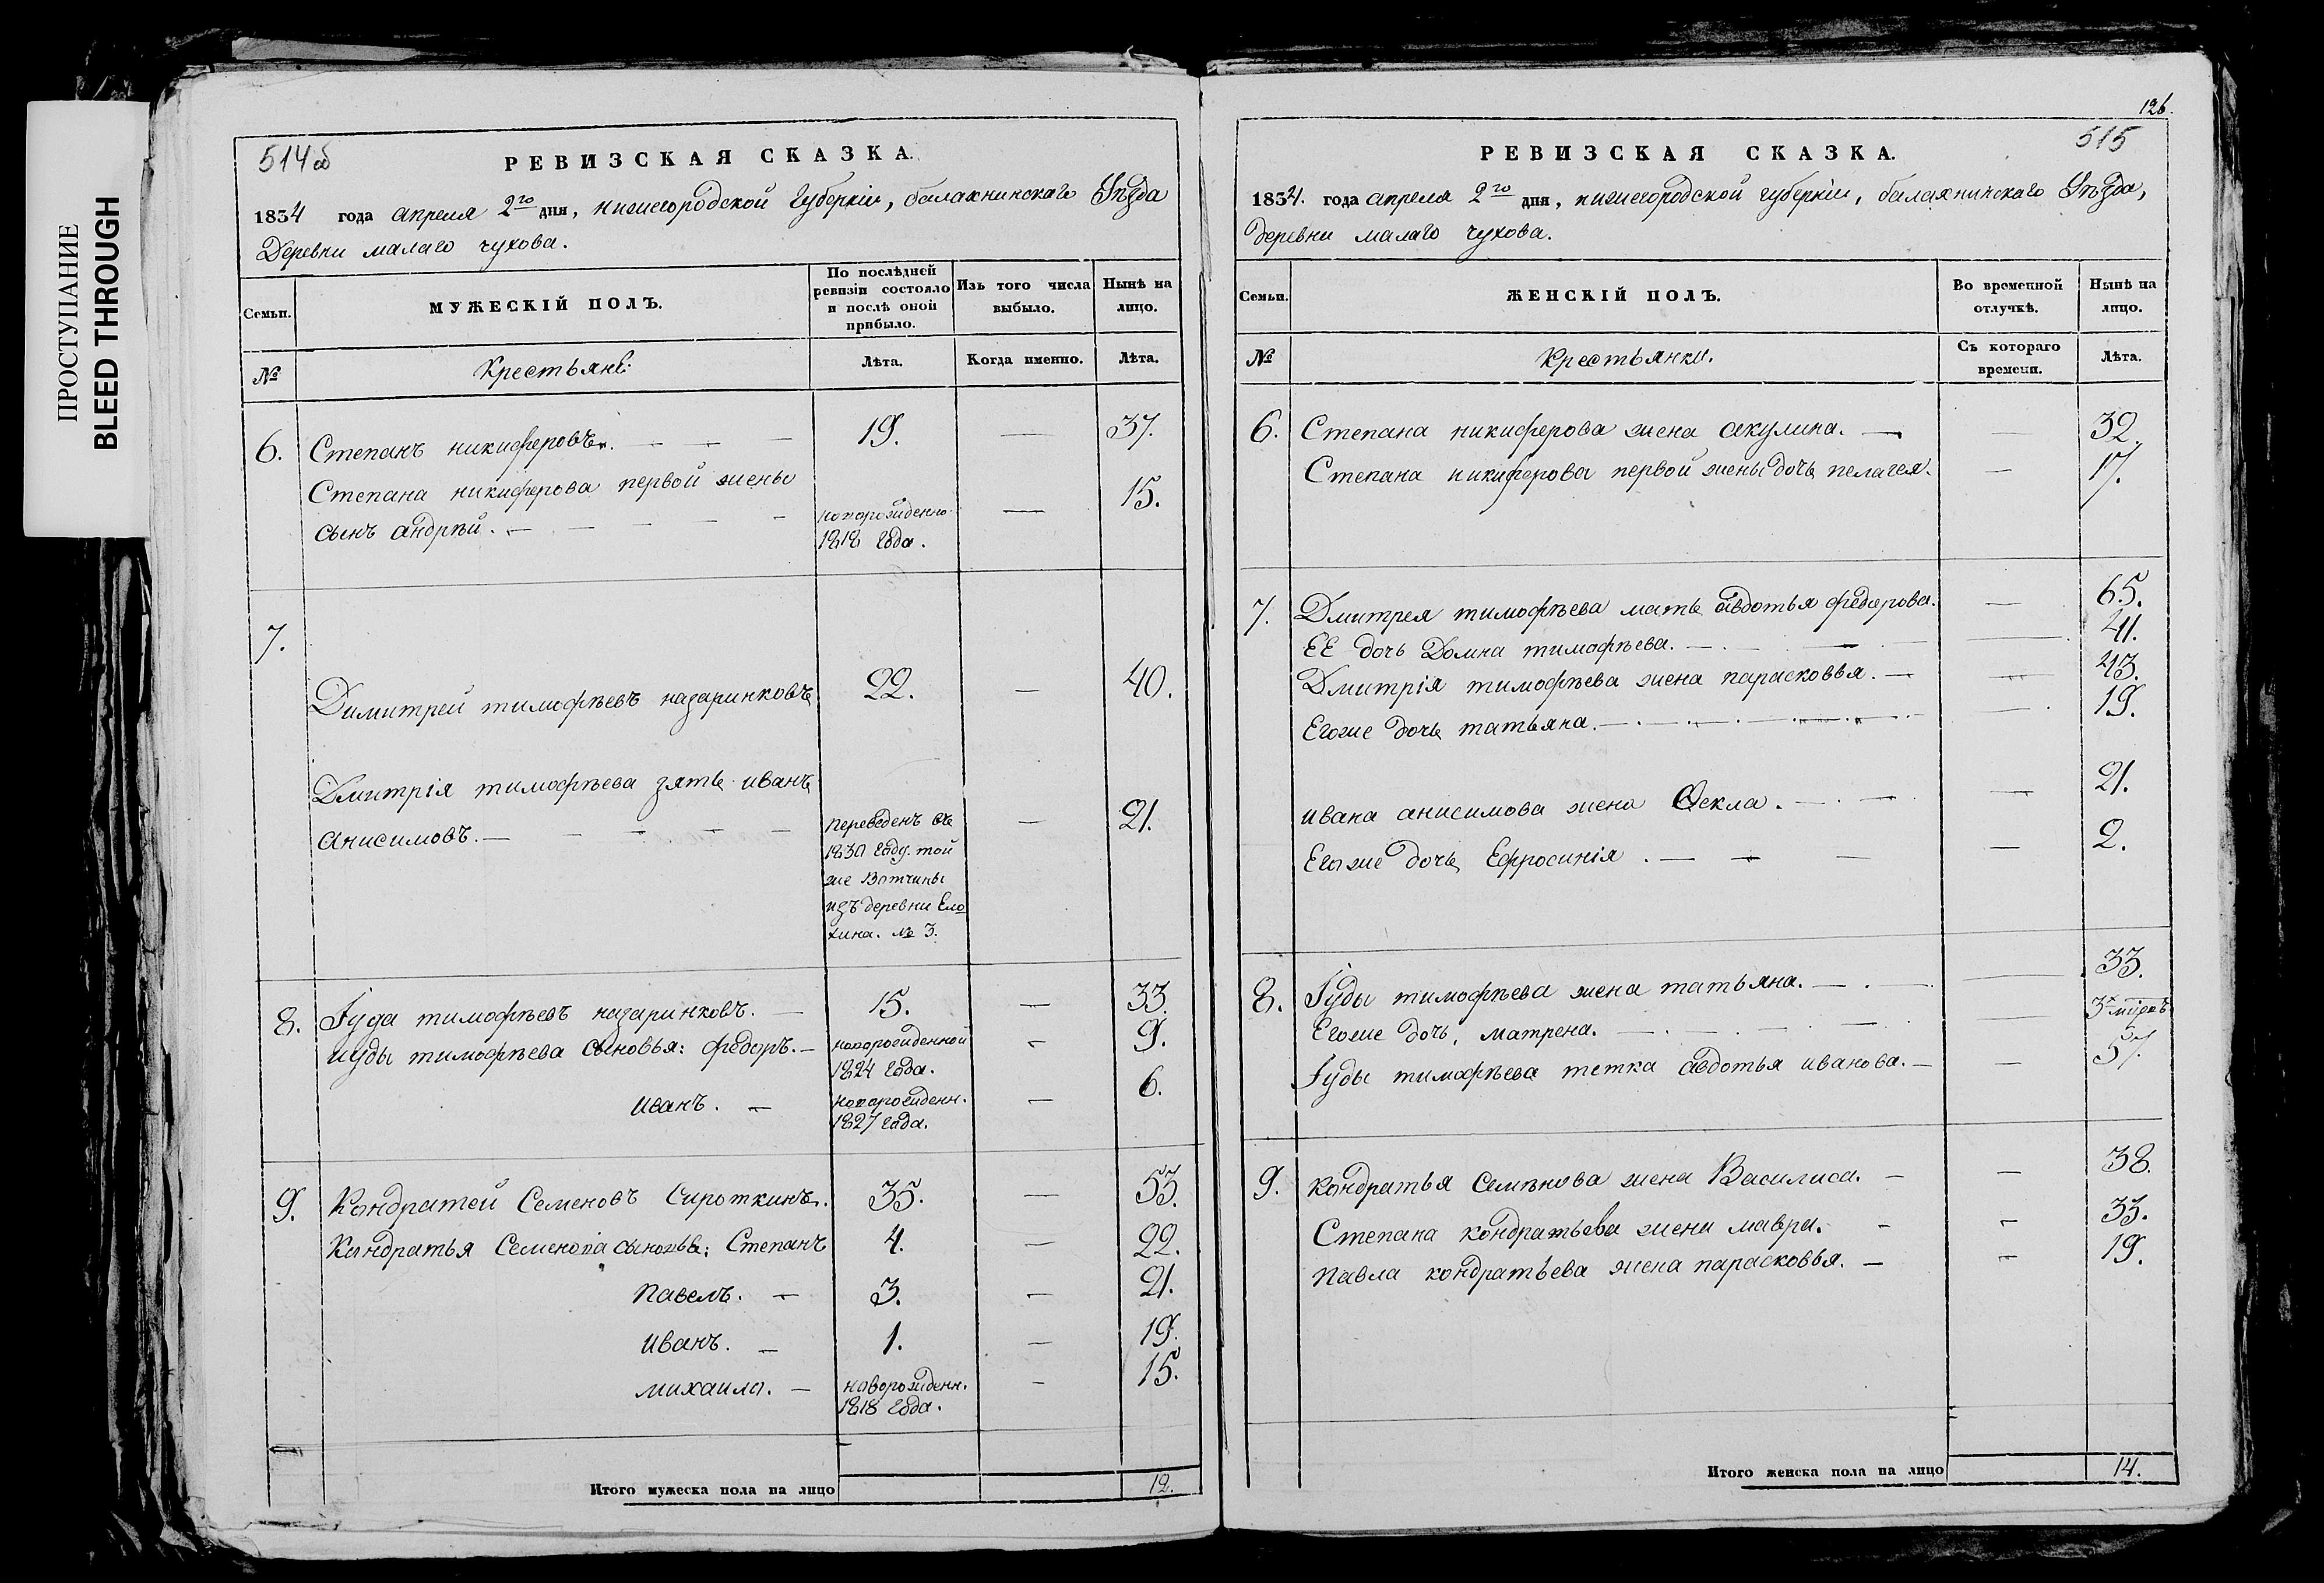 ПРОСТУПАНИЕ
BLEED THROUGH
514 об
РЕВИЗСКАЯ СКАЗКА.
1834 года апреля 2го дня, нижегородской губернiи, балахнинскаго Уѣзда
Деревни малаго чухова.
Семьи.
МУЖЕСКIЙ ПОЛЪ.
По послѣдней ревизiи состояло и послѣ оной прибыло.
Изъ того числа выбыло.
Нынѣ на лицо.
№
Крестьяне:
Лѣта.
Когда именно.
Лѣта.
6. Степанъ никиферовъ. — — — 19. — 37.
Степана никиферова первой жены
сынъ андрѣй. — — — — — новорожденно — 15.
1818 года.
7.
Димитрей тимофѣевъ назаринковъ 22. — 40.
Дмитрiя тимофѣева зять иванъ
анисимовъ. — — — — — переведенъ въ — 21.
1830 году. той
же Вотчины
изъ деревни Ело
хина. № 3.
8. Iуда тимофѣевъ назаринковъ. — 15. — 33.
иуды тимофѣева сыновья: федоръ. — новорожденной — 9.
1824 года.
иванъ. — новорожденн. — 6.
1827 года.
9. Кондратей Семеновъ Сироткинъ. 35. — 53.
Кондратья Семенова сыновья: Степанъ 4. — 22.
павелъ. — 3. — 21.
иванъ. — 1. — 19.
михаило. — новорожденн. — 15.
1818 года.
Итого мужеска пола на лицо 12.
126.
515
РЕВИЗСКАЯ СКАЗКА.
1834. года апреля 2го дня, нижегородской губернiи, балахнинскаго Уѣзда,
деревни малаго чухова.
Семьи.
ЖЕНСКIЙ ПОЛЪ.
Во временной отлучкѣ.
Нынѣ на лицо.
№
Крестьянки.
Съ котораго времени.
Лѣта.
6. Степана никиферова жена акулина. — — 32.
Степана никиферова первой жены дочь пелагея. — 17.
7. Дмитрея тимофѣева мать авдотья федорова. — 65.
ЕЕ дочь Домна тимофѣева. — — 41.
Дмитрiя тимофѣева жена парасковья. — — 43.
Егоже дочь татьяна. — — 19.
ивана анисимова жена Ѳекла. — — — 21.
Егоже дочь Ефросинiя. — — — — 2.
8. Iуды тимофѣева жена татьяна. — — — 33.
Егоже дочь, матрена. — — — 3х
Iуды тимофѣева тетка авдотья иванова. — — 57.
9. Кондратья Семѣнова жена Василиса. — — 38.
Степана кондратьева жена мавра. — — 33.
павла кондратьева жена парасковья. — — 19.
Итого женска пола на лицо 14.